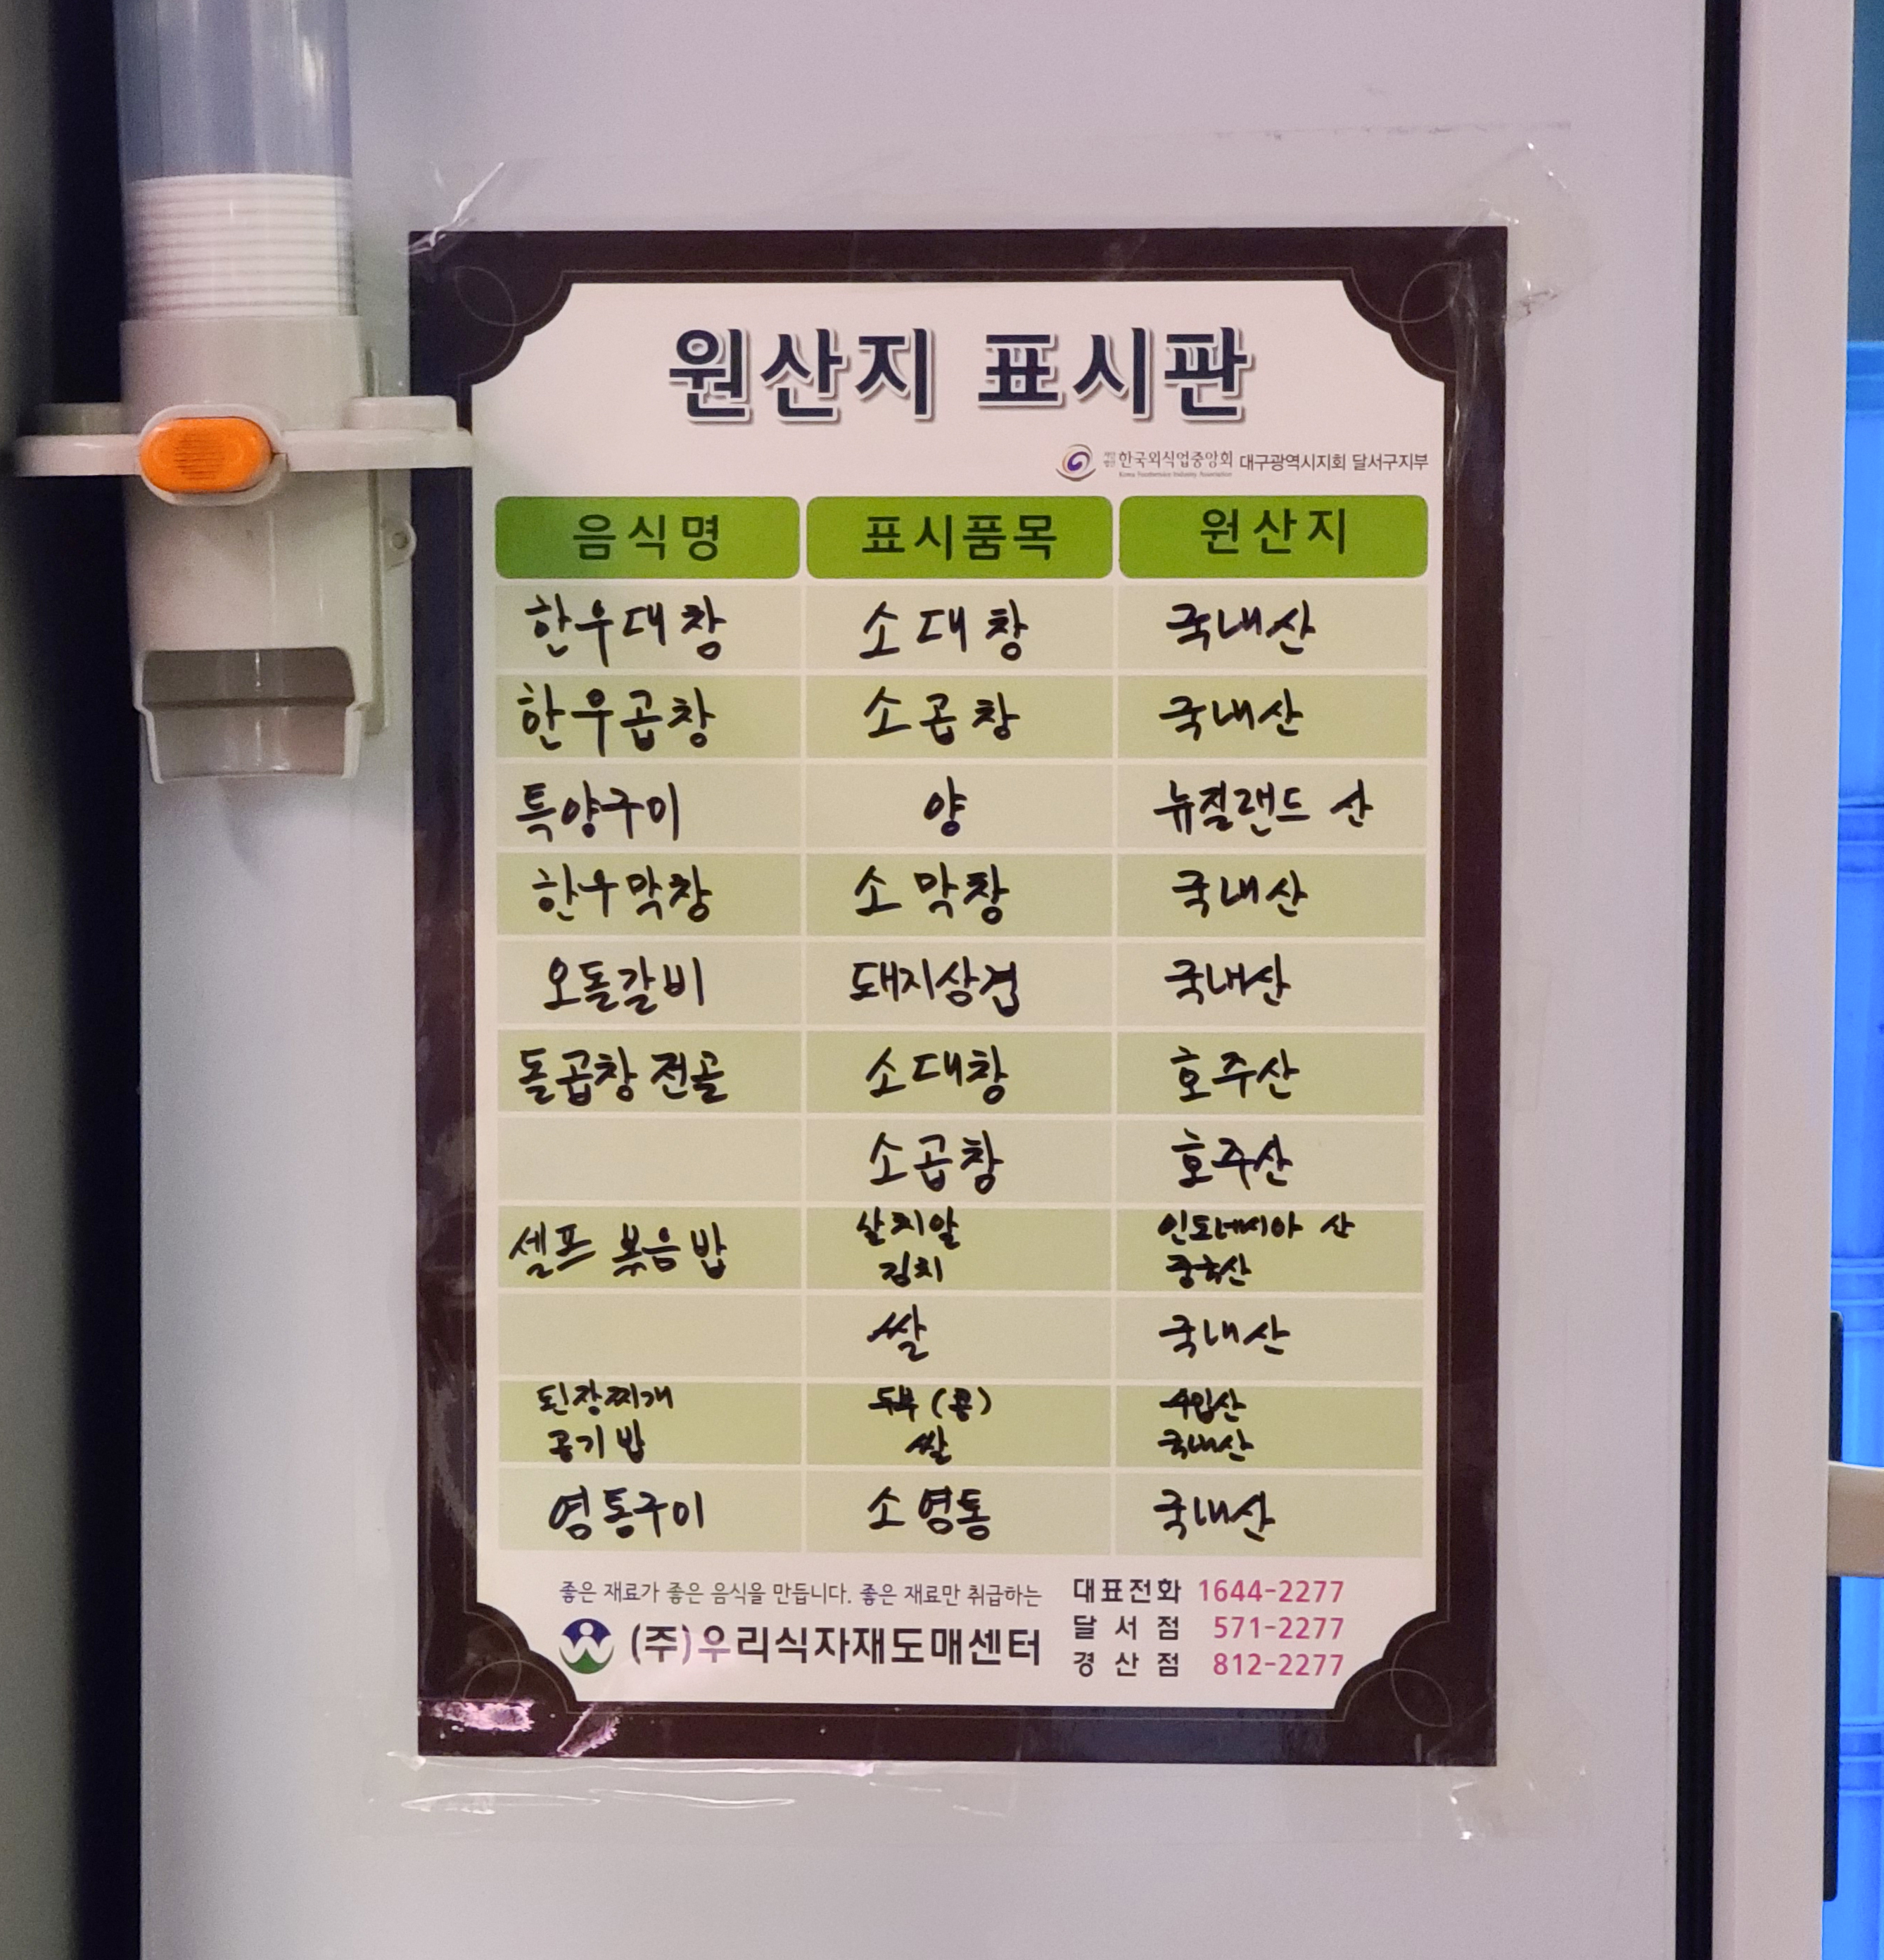 원산지 표시판
사단법인 한국외식업중앙회 대구광역시지회 달서구지부
Korea Foodservice Industry Association
음식명 표시품목 원산지
한우대창 소대창 국내산
한우곱창 소곱창 국내산
특양구이 양 뉴질랜드 산
한우막창 소막창 국내산
오돌갈비 돼지삼겹 국내산
돌곱창 전골 소대창 호주산
소곱창 호주산
셀프 볶음밥 날치알 인도네시아 산
김치 중국산
쌀 국내산
된장찌개 두부(콩) 수입산
공기밥 쌀 국내산
염통구이 소염통 국내산
좋은 재료가 좋은 음식을 만듭니다. 좋은 재료만 취급하는
(주)우리식자재도매센터
대표전화 1644-2277
달서점 571-2277
경산점 812-2277